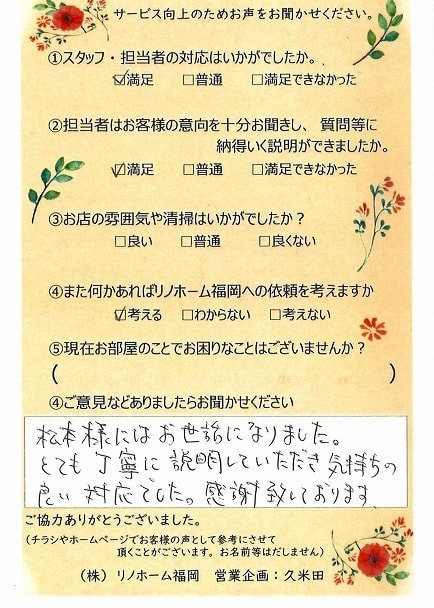 サービス向上のためお声をお聞かせください。
①スタッフ・担当者の対応はいかがでしたか。
☑満足 □普通 □満足できなかった
②担当者はお客様の意向を十分お聞きし、質問等に
納得いく説明ができましたか。
☑満足 □普通 □満足できなかった
③お店の雰囲気や清掃はいかがでしたか？
□良い □普通 □良くない
④また何かあればリノホーム福岡への依頼を考えますか
☑考える □わからない □考えない
⑤現在お部屋のことでお困りなことはございませんか？
( )
④ご意見などありましたらお聞かせください
松本様にはお世話になりました。
とても丁寧に説明していただき気持ちの
良い対応でした。感謝致しております。
ご協力ありがとうございました。
(チラシやホームページでお客様の声として参考にさせて
頂くことがございます。お名前等はだしません)
(株) リノホーム福岡 営業企画：久米田